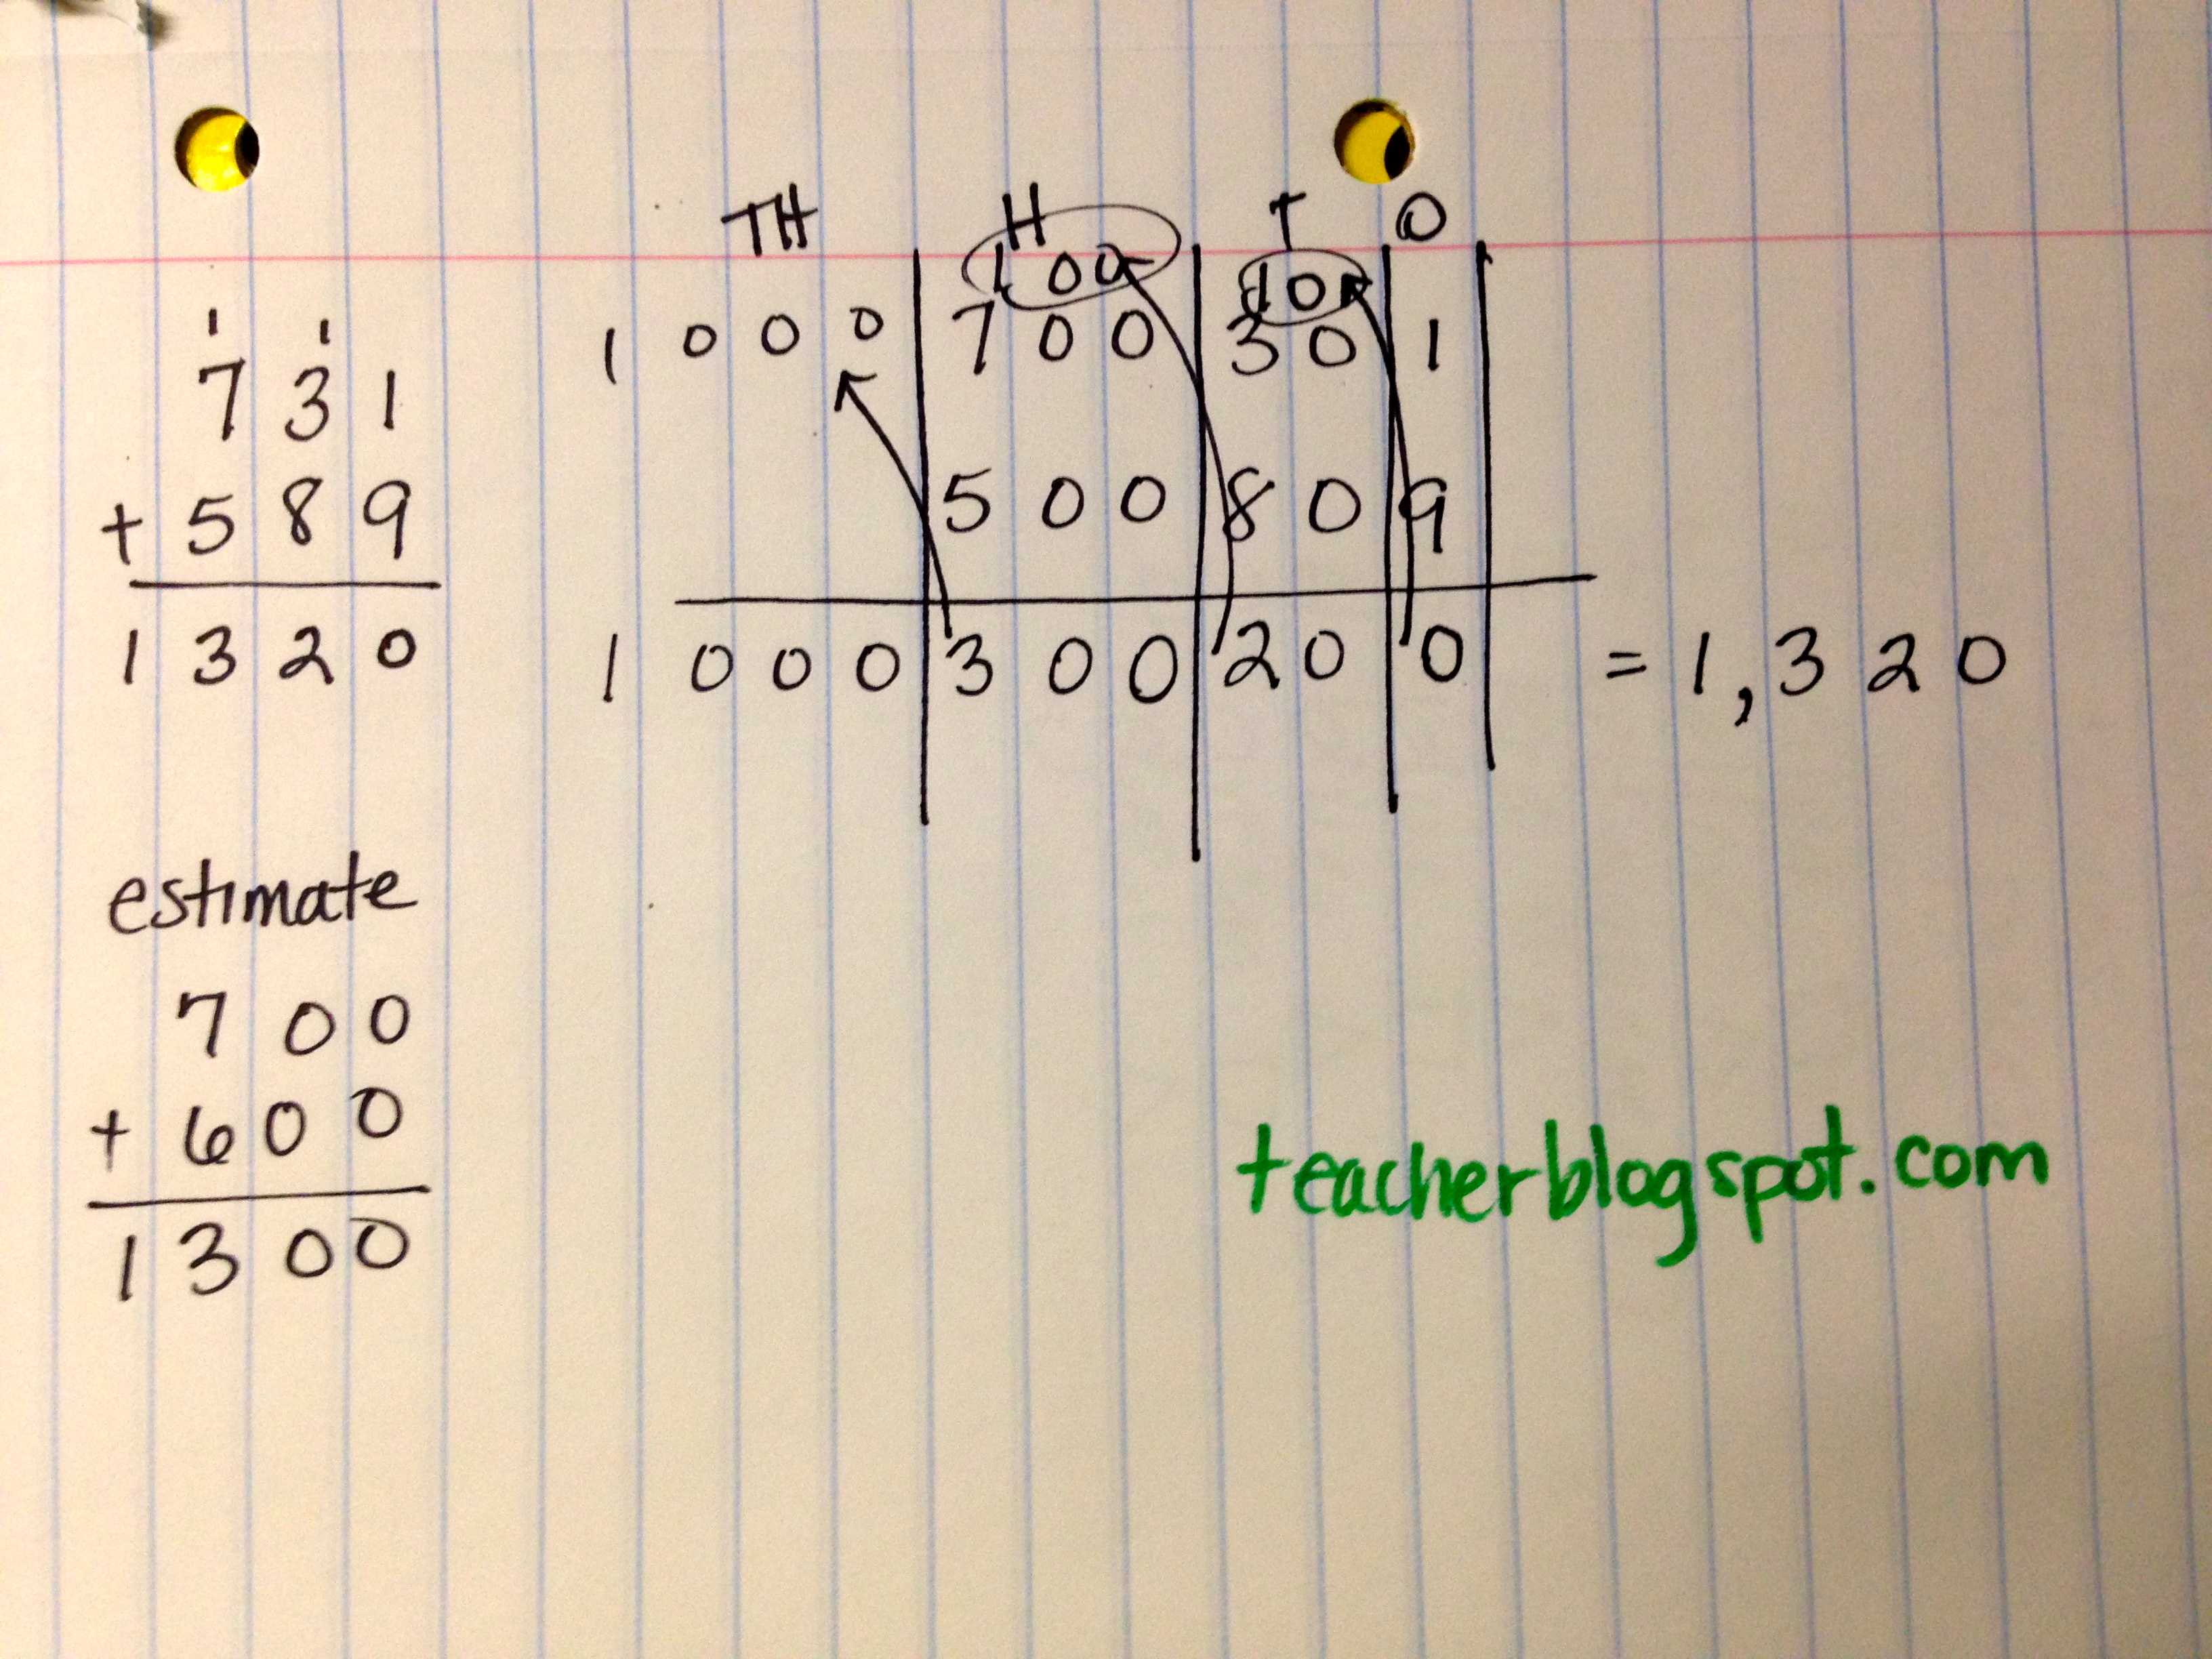 1 1
7 3 1
+ 5 8 9
1 3 2 0
estimate
7 0 0
+ 6 0 0
1 3 0 0
TH H T O
1 0 0 1 0
1 0 0 0 7 0 0 3 0 1
5 0 0 8 0 9
1 0 0 0 3 0 0 2 0 0 = 1,3 2 0
teacherblogspot.com